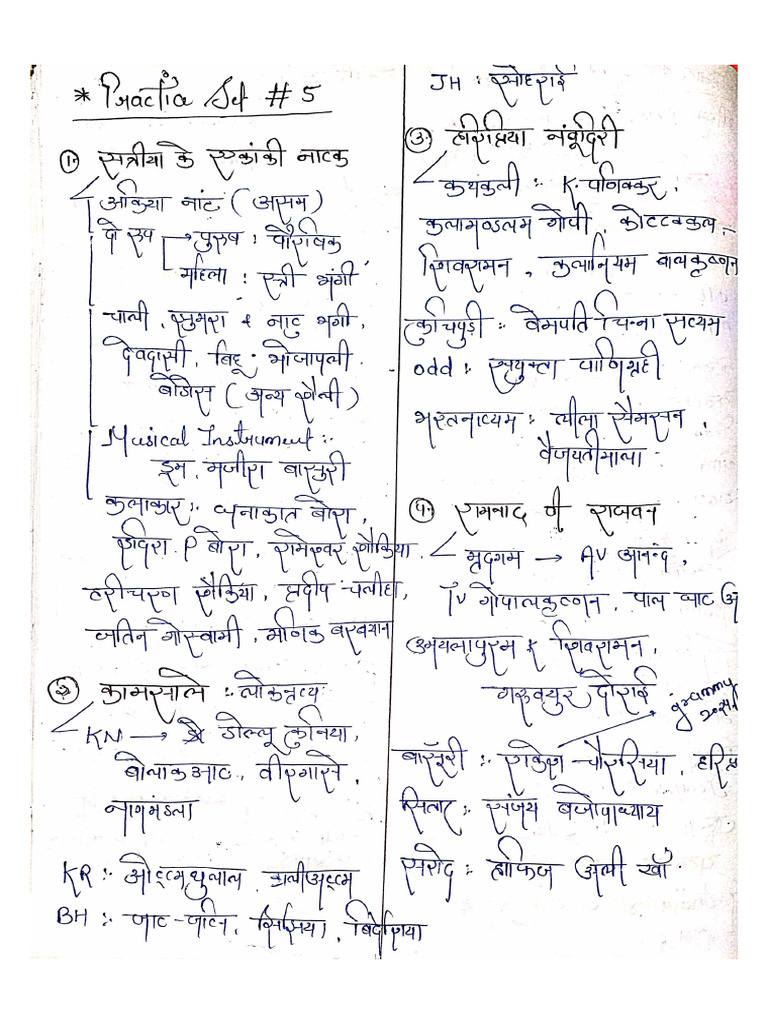 * Practice Set # 5
1. सत्रीया के एकांकी नाटक
अंकिया नांट (असम)
दो रूप → पुरुष : पौरुषिक
महिला : स्त्री भंगी
चाली, झुमरा & नादु भंगी,
देवदासी, बिहू, भोजापली
बेडिस (अन्य शैली)
Musical Instrument :-
ड्रम, मजीरा बासुरी
कलाकार :- घनाकात बोरा,
इंदिरा P बोरा, रामेश्वर शैकिया,
हरीचरण शैकिया, प्रदीप चलीहा,
जतिन गोस्वामी, मणिक बरबयान
2. कामसाले :- लोकनृत्य
KN → डोल्लू कुनिथा,
बोलाकआट, वीरगासे,
नागमंडला
KR :- ओट्टमथुलाल,
BH :- जाट-जटिन, झिझिया, बिदेशिया
JH : सोहराई
3. हरिप्रिया नंबूदिरी
कथकली :- K. पणिक्कर,
कलामण्डलम गोपी, कोटक्कल
शिवरामन, कलानियम बालकृष्णन
कुचिपुड़ी :- वेमपति चिन्ना सत्यम
odd :- सयुक्ता पाणिग्रही
भरतनाट्यम :- लीला सैमसन,
वैजयतीमाला
4. रामनाद पी राघवन
मृदगम → AV आनन्द,
TV गोपालकृष्णन, पाल घाट
उमयलापुरम K शिवरामन,
गरुवयुर दोराई
बाँसुरी :- राकेश चौरसिया,
grammy
2024
सितार :- संजय बंजोपाध्याय
सरोद :- हाफिज अली खाँ